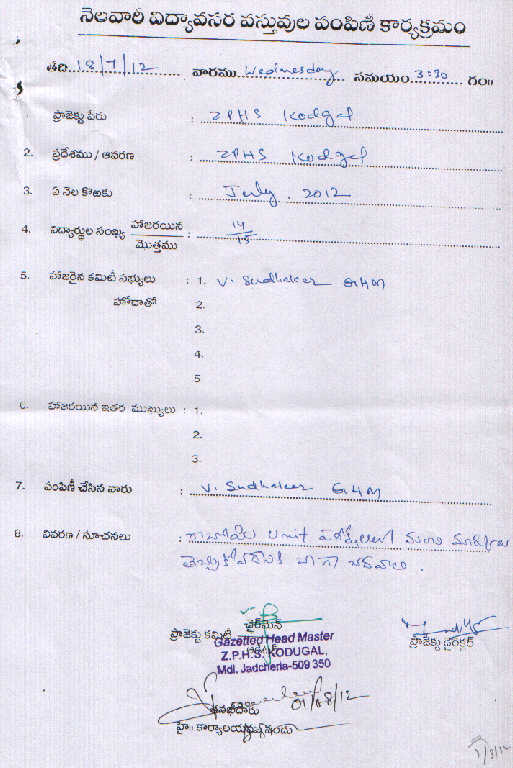 నెలవారీ విద్యావసర వస్తువుల పంపిణీ కార్యక్రమం
తేది 18/7/12 వారము Wednesday సమయం 3:30 గం॥
ప్రాజెక్టు పేరు : ZPHS Kodgal
2. ప్రదేశము / ఆవరణ : ZPHS Kodgal
3. ఏ నెల కొఱకు : July. 2012
4. విద్యార్థుల సంఖ్య హాజరయిన / మొత్తము : 14/15
5. హాజరైన కమిటీ సభ్యులు : 1. V. Sudhaker GHM
హోదాతో 2.
3.
4.
5
6. హాజరయిన ఇతర ముఖ్యులు : 1.
2.
3.
7. పంపిణీ చేసిన వారు : V. Sudhaker GHM
8. వివరణ / సూచనలు : Unit
ప్రాజెక్టు కమిటీ ఛైర్మెన్
ప్రాజెక్టు స్పాన్సర్
Gazetted Head Master
Z.P.H.S. KODUGAL,
Mdl. Jadcherla-509 350
01/08/12